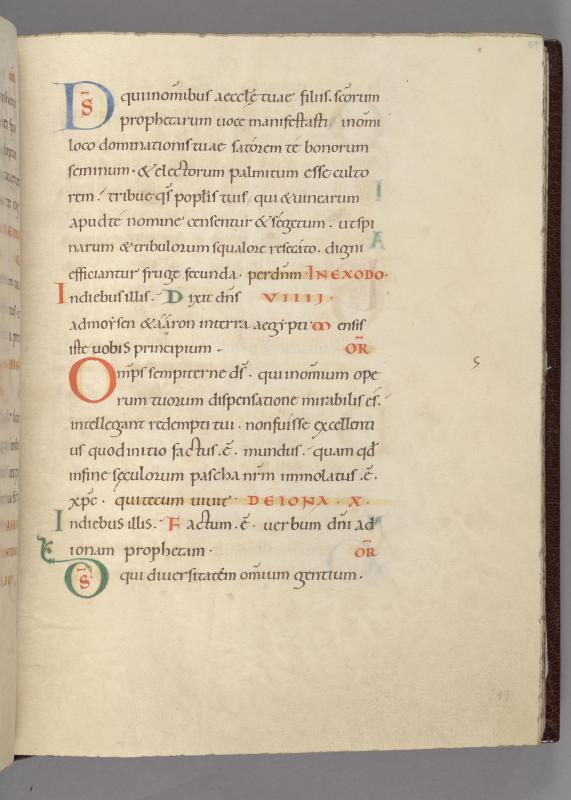 D̅S̅ qui inom̅ibus aeccl̅e tuae filiis. sc̅orum
prophetarum uoce manifestasti inom̅i
loco dominationis tuae satorem te bonorum
seminum· & electorum palmitum esse culto
rem· tribue qs̅ popl̅is tuis qui & uinearum
apud te nomine censentur & segetum· ut spi
narum & tribulorum squalore resecato· digni
efficiantur fruge fecunda· perdn̅m IN EXODO·
In diebus illis· Dixit dn̅s VIIII·
ad moysen & aaron in terra aegypti· mensis
iste uobis principium· OR̅
Omp̅s sempiterne ds̅· qui inom̅ium ope
rum tuorum dispensatione mirabilis es·
intellegant redempti tui· non fuisse excellenti
us quod initio factus· e̅· mundus· quam qd̅
in fine seculorum pascha nr̅m immolatus· e̅·
xp̅c· qui tecum uiuit· DE IONA· X·
In diebus illis· Factum· e̅· uerbum dn̅i ad
ionam prophetam· OR̅
D̅S̅ qui diuersitatem om̅ium gentium·
s